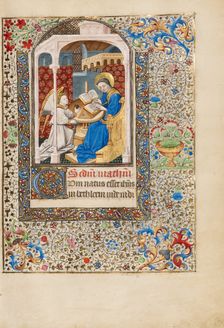 Scdm matheum
Cum natus esset ihus
in bethleem iude in di